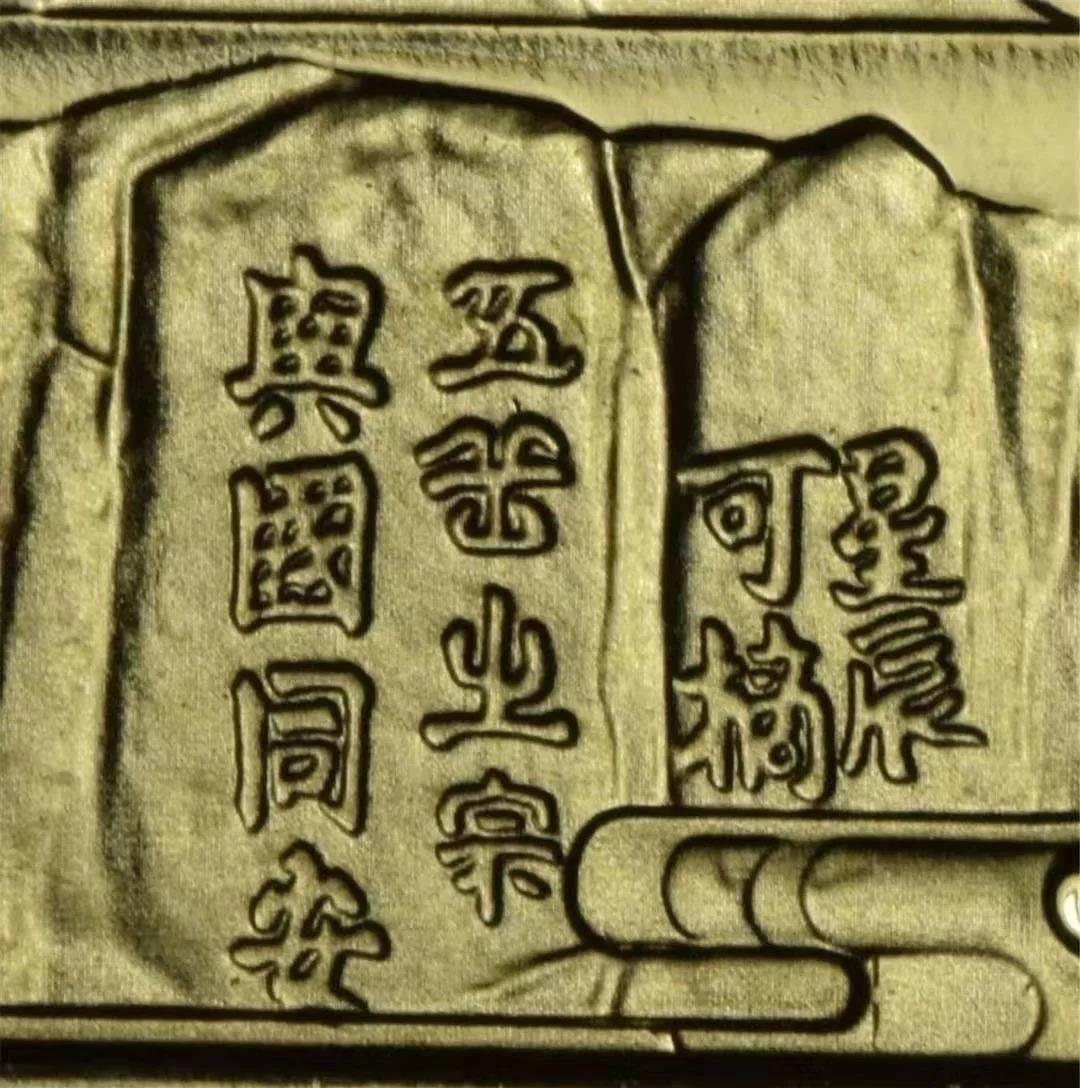 星辰
可摘
五岳之宗
與國同安